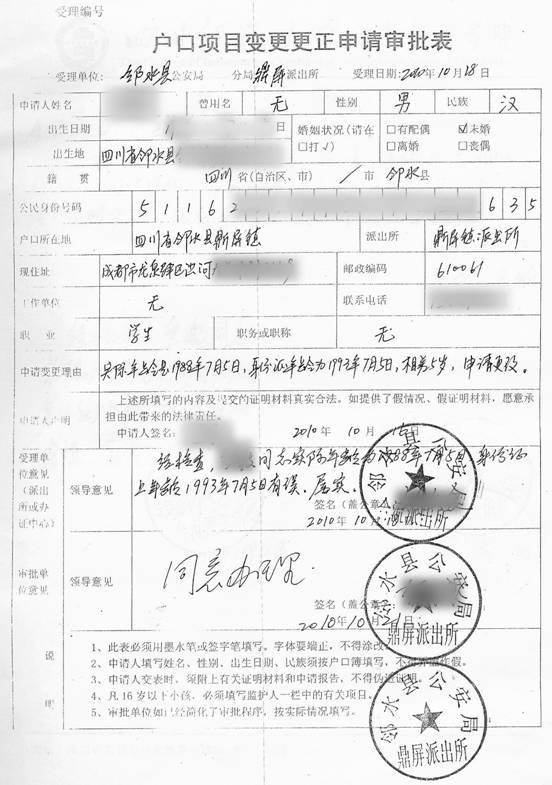 受理编号
户口项目变更更正申请审批表
受理单位: 邻水县公安局 分局 鼎屏派出所 受理日期: 2010年10月18日
申请人姓名 曾用名 无 性别 男 民族 汉
出生日期 1 日 婚姻状况(请在□打√) □有配偶 ☑未婚 □离婚 □丧偶
出生地 四川省邻水县
籍贯 四川省(自治区、市) / 市 邻水县
公民身份号码 5 1 1 6 2 6 3 5
户口所在地 四川省邻水县鼎屏镇 派出所 鼎屏镇派出所
现住址 成都市龙泉驿区洪河 邮政编码 610061
工作单位 无 联系电话
职业 学生 职务或职称 无
申请变更理由 实际年龄是1988年7月5日,身份证年龄为1993年7月5日,相差5岁,申请更改。
申请人声明 上述所填写的内容及提交的证明材料真实合法。如提供了假情况、假证明材料,愿意承
担由此带来的法律责任。
申请人签名: 2010年10月1 日
受理单位意见(派出所或办证中心) 领导意见 经检查, 同志实际年龄为1988年7月5日,身份证
上年龄1993年7月5日有误,属实。
签名(盖公章)
2010年10月
邻水县公安局 鼎屏派出所
审批单位意见 领导意见 同意办理
签名(盖公章)
2010年10月21日
邻水县公安局 鼎屏派出所
说明
1、此表必须用墨水笔或签字笔填写。字体要端正,不得涂改。
2、申请人填写姓名、性别、出生日期、民族须按户口簿填写,不得弄虚作假。
3、申请人交表时、须附上有关证明材料和申请报告,不得伪造证明。
4、凡16岁以下小孩、必须填写监护人一栏中的有关项目。
5、审批单位如已经简化了审批程序,按实际情况填写。
邻水县公安局 鼎屏派出所